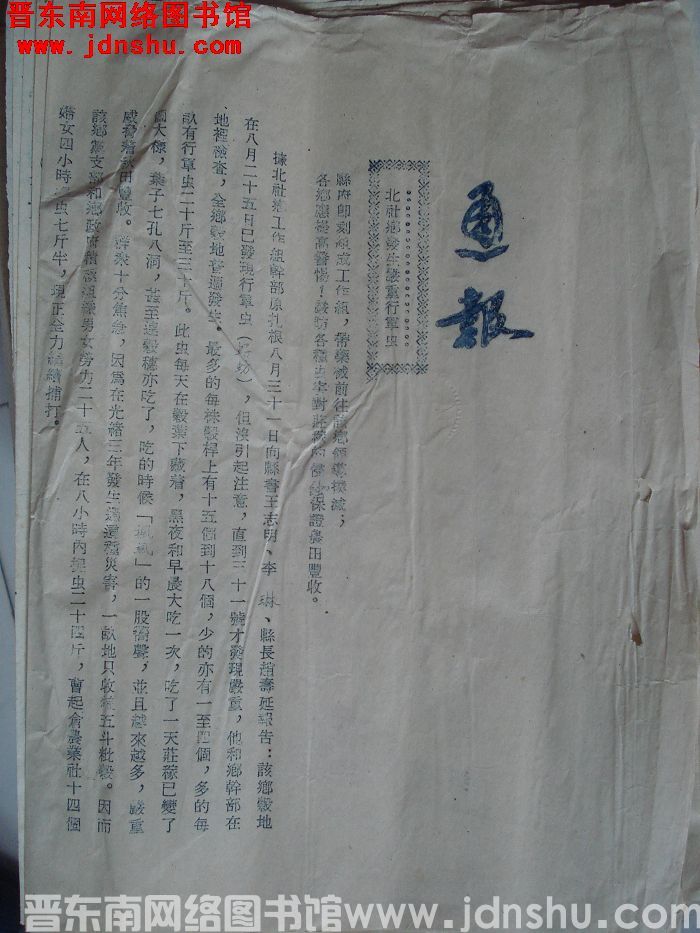 晋东南网络图书馆
www.jdnshu.com
通報
北社鄉發生嚴重行軍虫
縣府即刻組成工作組，帶藥械前往該鄉領導撲滅；
各鄉應提高警惕，嚴防各種虫害對莊稼的 保證農田豐收。
據北社鄉工作組幹部原扎根八月三十一日向縣書王志明、李琳、縣長趙壽延報告：該鄉穀地
在八月二十五日已發現行軍虫（好妨），但沒引起注意，直到三十一號才發現嚴重，他和鄉幹部在
地裡檢查，全鄉穀地普遍發生。最多的每株穀桿上有十五個到十八個，少的亦有一至四個，多的每
畝有行軍虫二十斤至三十斤。此虫每天在穀葉下藏着，黑夜和早晨大吃一次，吃了一天莊稼已變了
個大樣，葉子七孔八洞，甚至連穀穗亦吃了，吃的時候「 」的一股 聲，並且越來越多，嚴重
威脅着秋田豐收。群衆十分焦急，因爲在光緒三年發生過這種災害，一畝地只收 五斗秕穀。因而
該鄉黨支部和鄉政府積極組織男女勞力二十五人，在八小時內捉虫二十四斤，曹起倉農業社十四個
婦女四小時捉虫七斤半，現正全力繼續捕打。
晋东南网络图书馆www.jdnshu.com